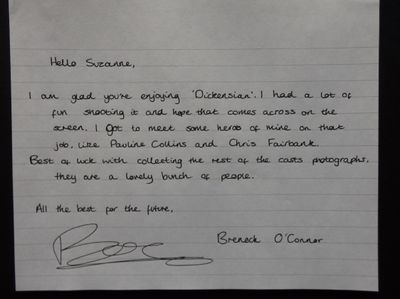 Hello Suzanne,
I am glad you're enjoying 'Dickensian'. I had a lot of
fun shooting it and hope that comes across on the
screen. I got to meet some heros of mine on that
job, like Pauline Collins and Chris Fairbank.
Best of luck with collecting the rest of the casts photographs,
they are a lovely bunch of people.
All the best for the future,
Breneck O'Connor